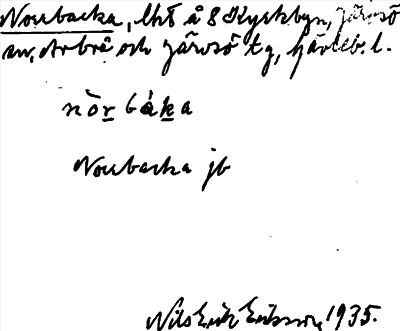 Norrbacka, lht å 8 Kyrkbyn, Järvsö
sn, Arbrå och Järvsö tg, Gävleb. l.
nòr bàka
Norrbacka jb
Nils Erik Eriksson 1935.